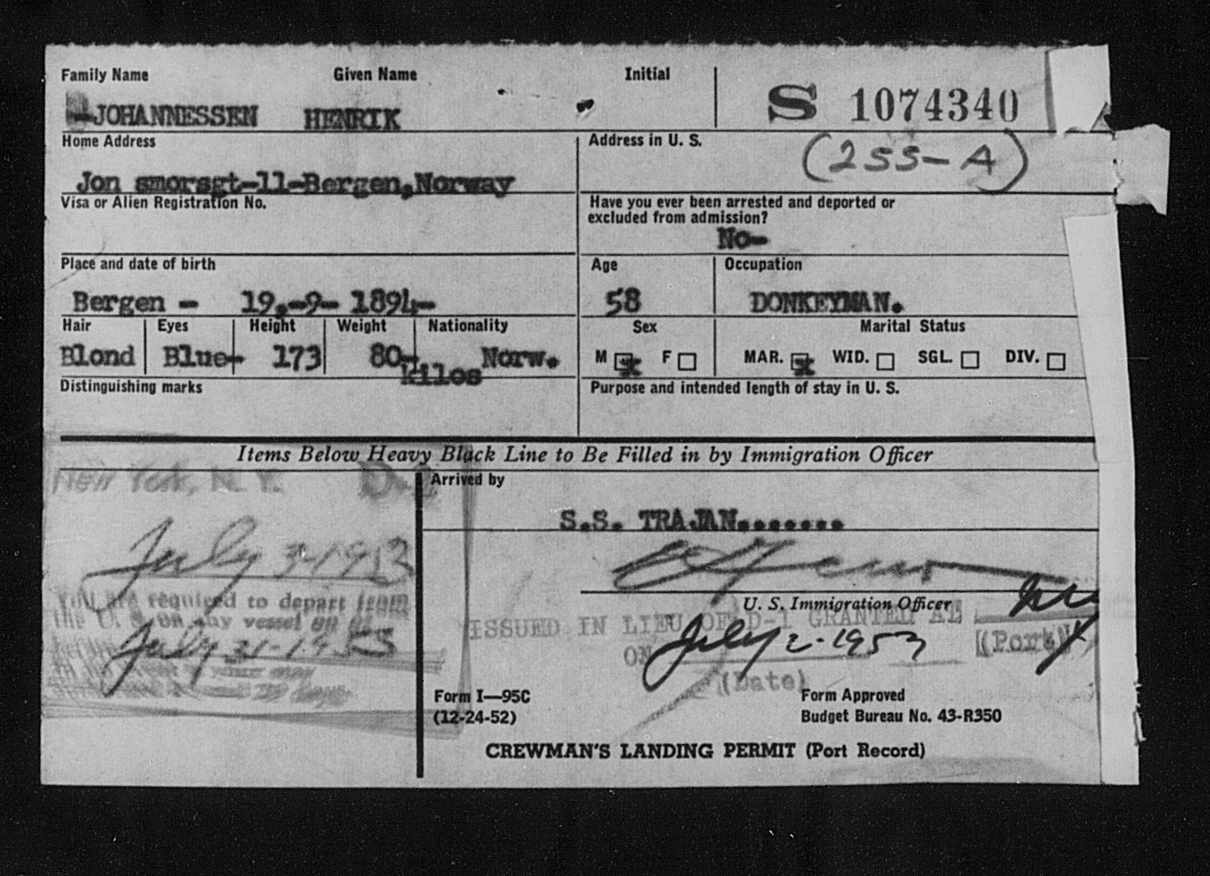 Family Name Given Name Initial
JOHANNESSEN HENRIK S 1074340
Home Address Address in U. S. (255-A)
Jon smorsgt-11-Bergen,Norway
Visa or Alien Registration No. Have you ever been arrested and deported or
excluded from admission?
No-
Place and date of birth Age Occupation
Bergen - 19.-9- 1894- 58 DONKEYMAN.
Hair Eyes Height Weight Nationality Sex Marital Status
Blond Blue- 173 80- Norw. M F MAR. WID. SGL. DIV.
kilos
Distinguishing marks Purpose and intended length of stay in U. S.
Items Below Heavy Black Line to Be Filled in by Immigration Officer
New York, N. Y. D-1 Arrived by
S.S. TRAJAN.......
July 3-1953
U. S. Immigration Officer
You are required to depart from
the U. S. on any vessel on or
ISSUED IN LIEU OF D-1 GRANTED AT NY
July 31-1953 ON July 2-1953 (Port)
(Date)
Form I—95C Form Approved
(12-24-52) Budget Bureau No. 43-R350
CREWMAN'S LANDING PERMIT (Port Record)